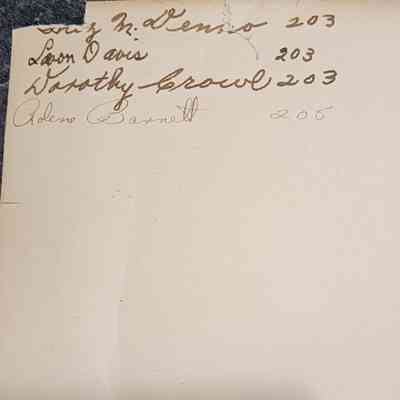 N. Denno 203
Leon Davis 203
Dorothy Crowl 203
Adena Barnett 205